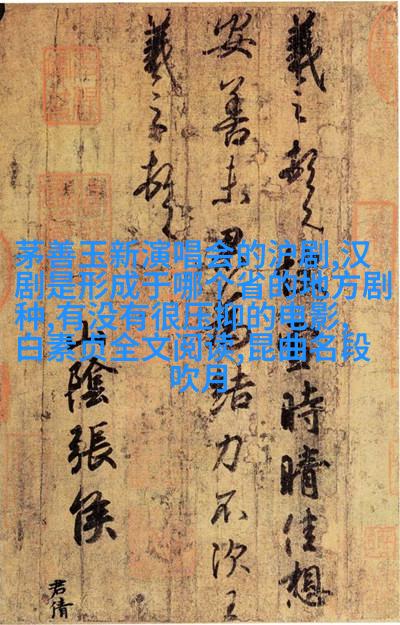 茅善玉新演唱会的沪剧,汉
剧是形成于哪个省的地方剧
种,有没有很压抑的电影,
白素贞全文阅读,昆曲名段
吹月
羲之頓首快雪時晴佳想
安善未果為結力不次王
羲之頓首
山陰張侯
君倩